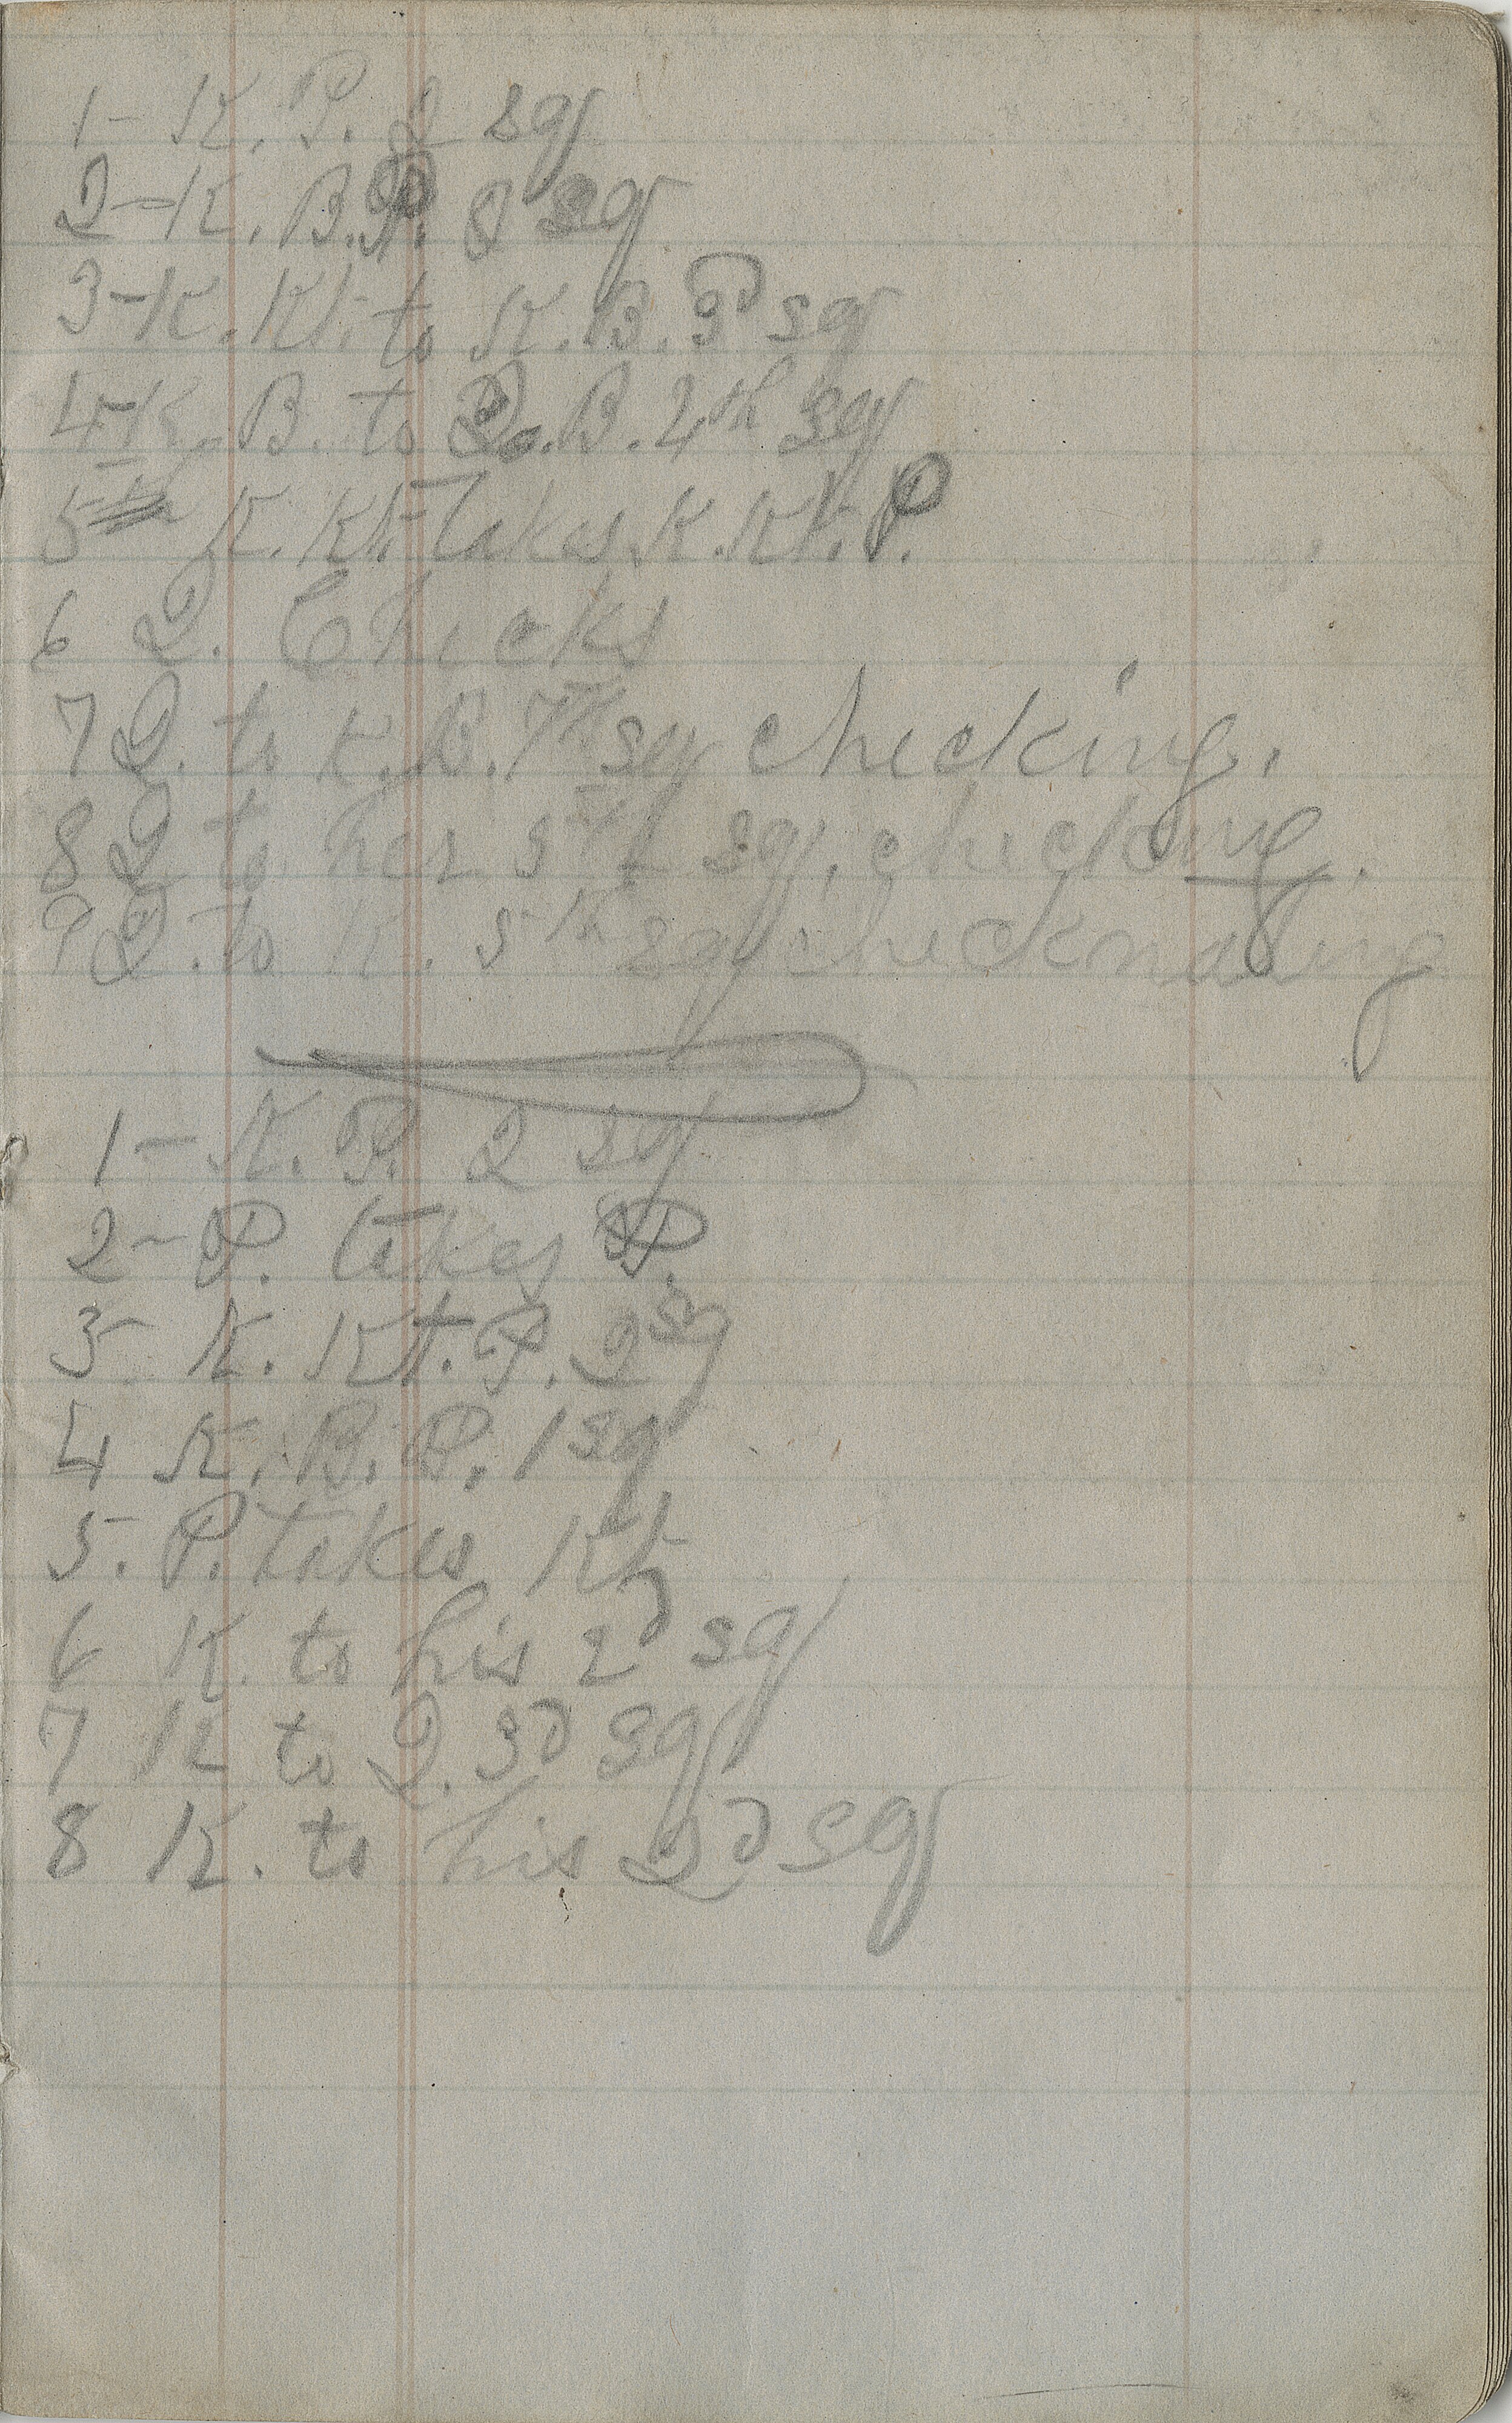 1- K. P. 2 sq
2- K. B. P. 2 sq
3- K. Kt. to K. B. 3d sq
4- K. B. to Q. B. 4th sq
5 K. Kt. Takes K. Kt. P.
6 Q. Checks
7 Q. to K. B. 7th sq checking.
8 Q to her 5th sq, checking.
9 Q. to K. 5th sq checkmating
1- K. P. 2 sq
2- P. takes P.
3- K. Kt. P. 2 sq
4 K. B. P. 1 sq
5. P. takes Kt
6 K. to his 2d sq
7 K to Q. 3d sq
8 K. to his 2d sq